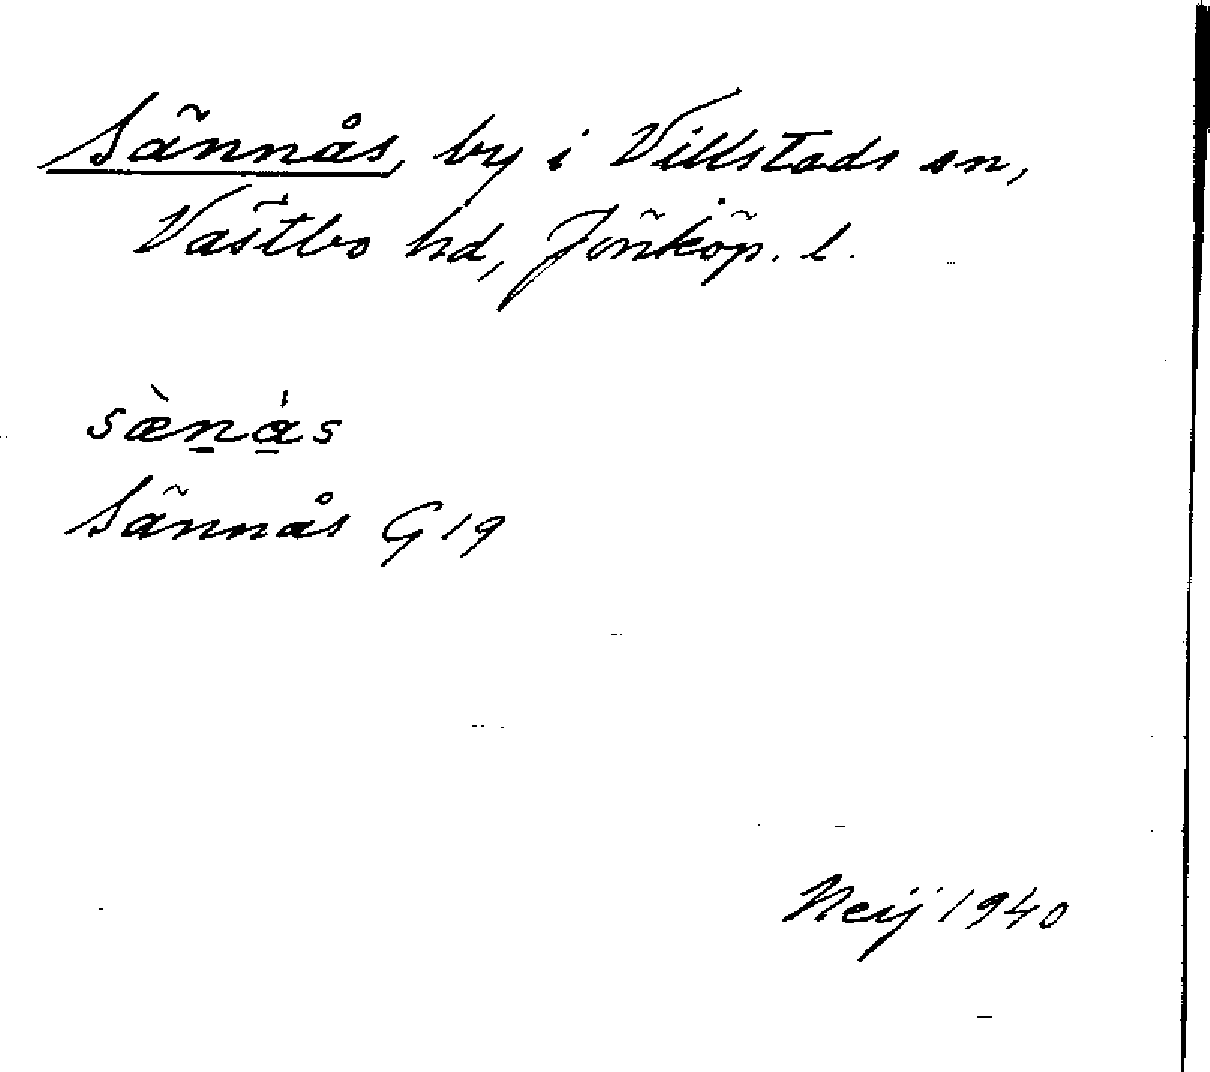 Sännås, by i Villstads sn,
Västbo hd, Jönköp. l.
sæ̀n̲a̲̍s
Sännås G19
Neij 1940